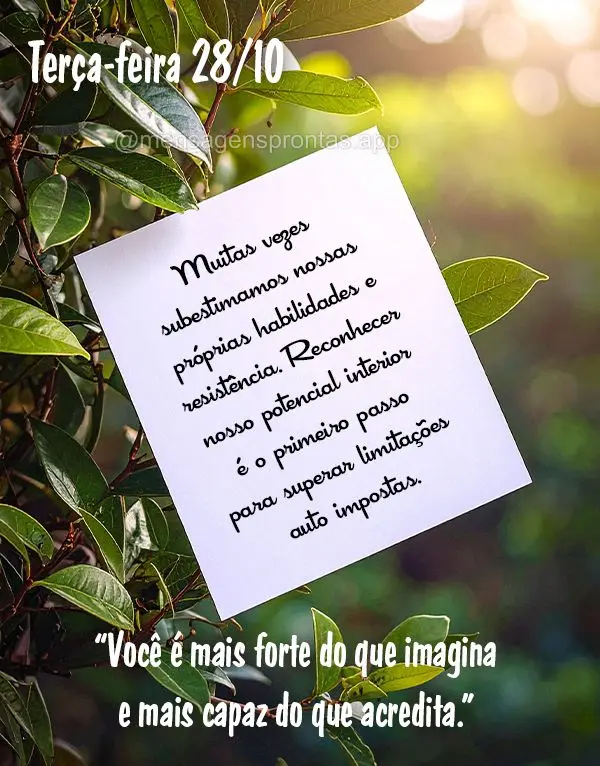 Terça-feira 28/10
@mensagensprontas.app
Muitas vezes
subestimamos nossas
próprias habilidades e
resistência. Reconhecer
nosso potencial interior
é o primeiro passo
para superar limitações
auto impostas.
“Você é mais forte do que imagina
e mais capaz do que acredita.”